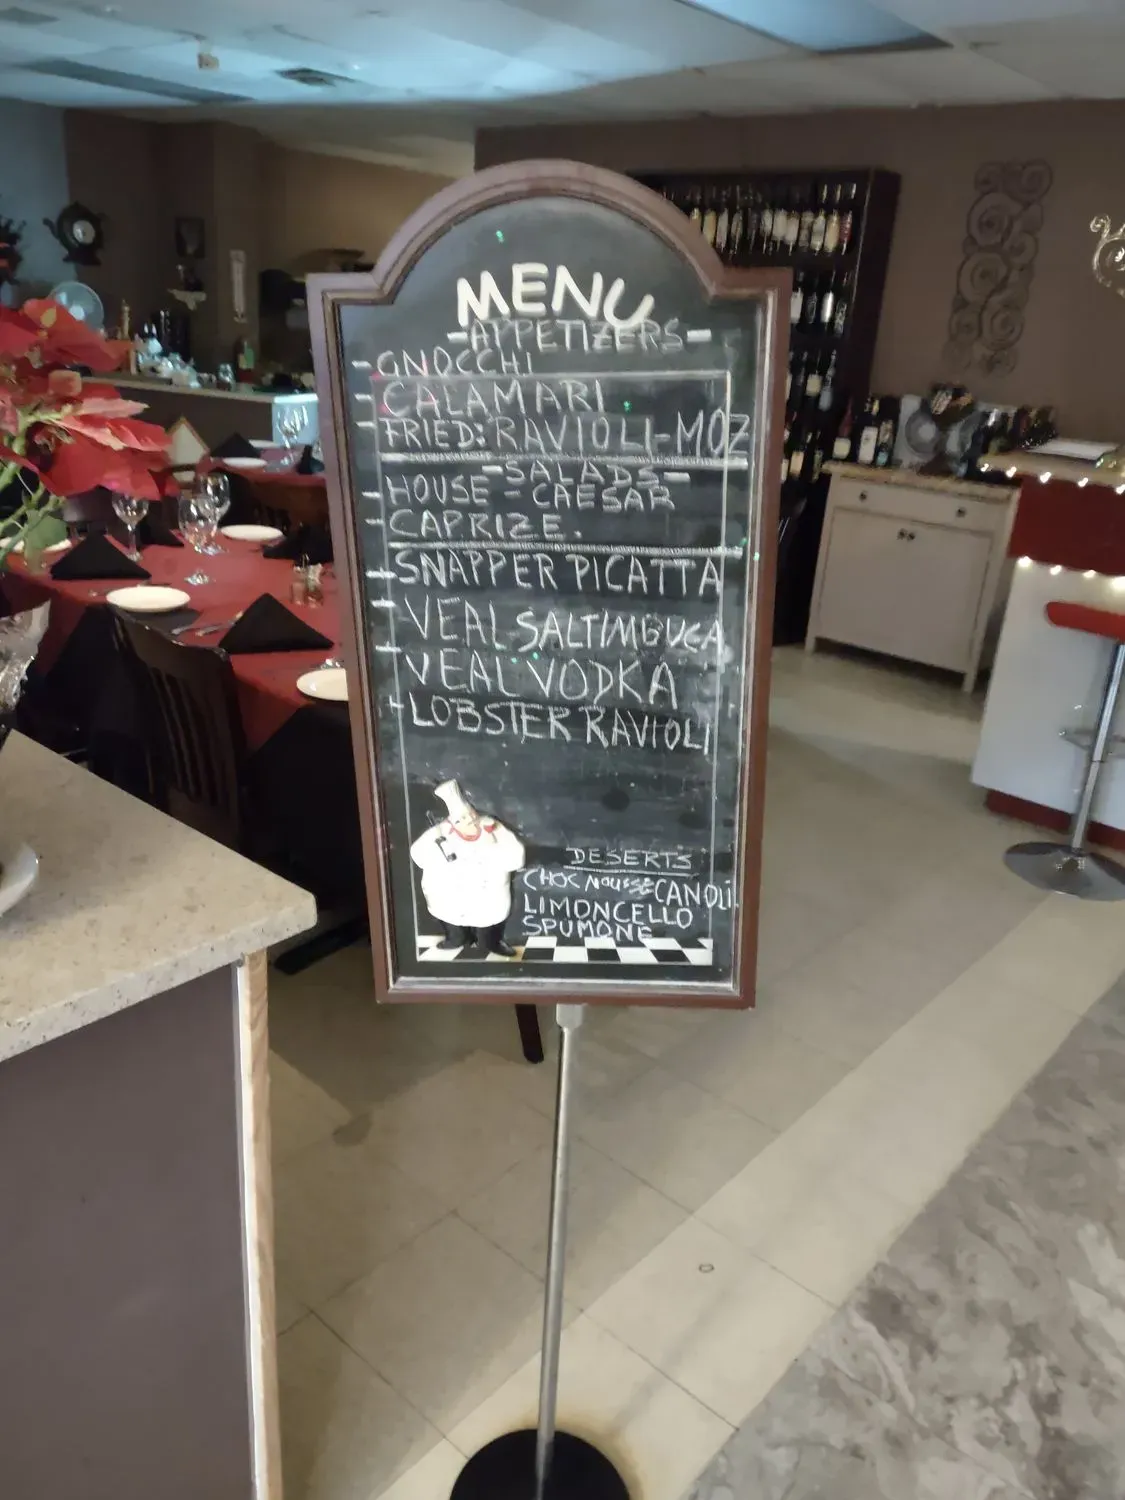 MENU
-APPETIZERS-
- GNOCCHI
- CALAMARI
- FRIED: RAVIOLI-MOZ
-SALADS-
- HOUSE - CAESAR
- CAPRIZE.
- SNAPPER PICATTA
- VEAL SALTIMBUCA
- VEAL VODKA
- LOBSTER RAVIOLI
DESERTS
CHOC MOUSSE CANOLI
LIMONCELLO
SPUMONE